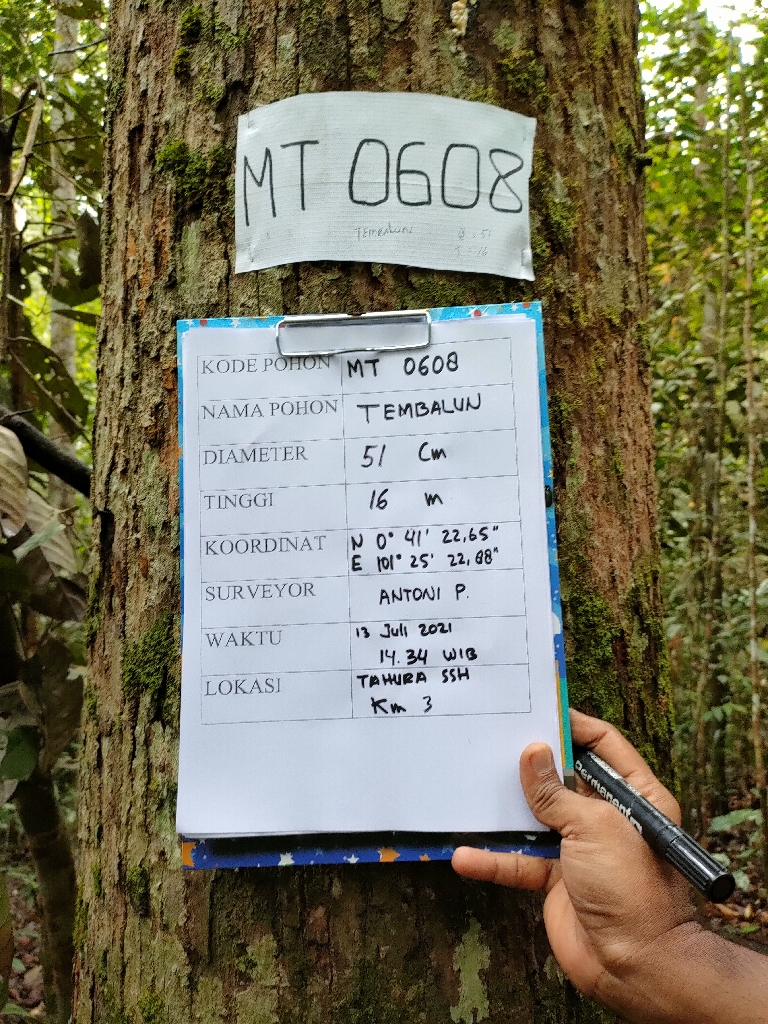 MT 0608
TEMBALUN Ø . 51
T . 16
KODE POHON MT 0608
NAMA POHON TEMBALUN
DIAMETER 51 Cm
TINGGI 16 m
KOORDINAT N 0° 41' 22,65"
E 101° 25' 22,88"
SURVEYOR ANTONI P.
WAKTU 13 Juli 2021
14.34 WIB
LOKASI TAHURA SSH
Km 3
Permanent